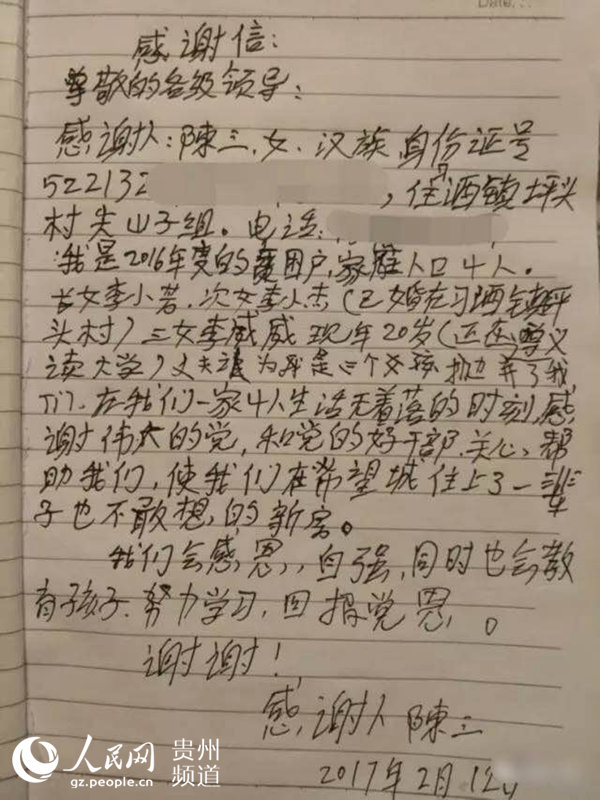 Date:
感谢信:
尊敬的各级领导:
感谢人:陳三,女、汉族,身份证号
522132 ,住习酒镇坪头
村尖山子组。电话:
我是2016年度的贫困户,家庭人口4人。
长女李小若、次女李小杰(已婚在习酒镇坪
头村)三女李威威现年20岁(还在遵义
读大学)丈夫 为我是三个女孩抛弃了我
们.在我们一家4人生活无着落的时刻,感
谢伟大的党,和党的好干部.关心、帮
助我们,使我们在希望城住上了一辈
子也不敢想的新房。
我们会感恩,自强,同时也会教
育孩子.努力学习,回报党恩。
谢谢!
感谢人陳三
2017年2月12
人民网 贵州
频道
gz.people.cn